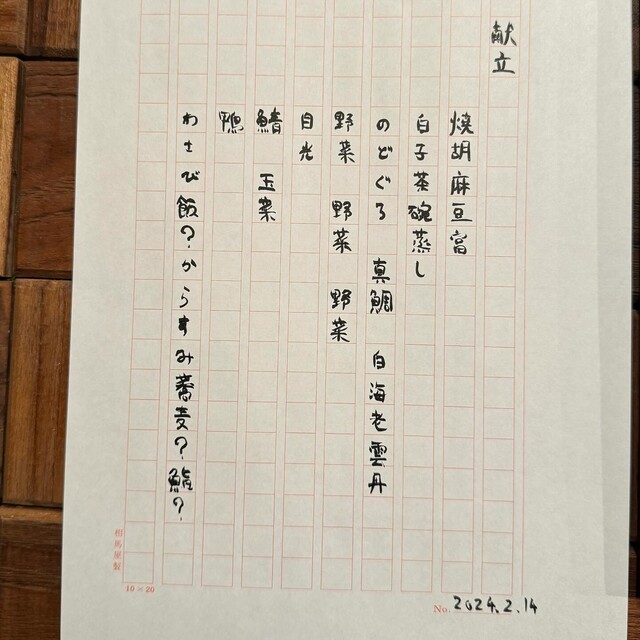 献立
焼胡麻豆富
白子茶碗蒸し
のどぐろ 真鯛 白海老雲丹
野菜 野菜 野菜
目光
鰆 玉菜
鴨
わさび飯?からすみ蕎麦?鮨?
相馬屋製
10×20
No. 2024.2.14